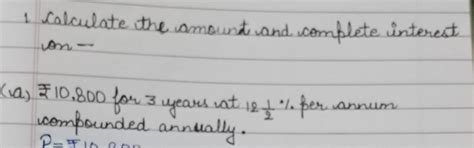 1. Calculate the amount and complete interest
on –
(a) ₹10,800 for 3 years at 12 1/2 % per annum
compounded annually.
P= ₹10,800